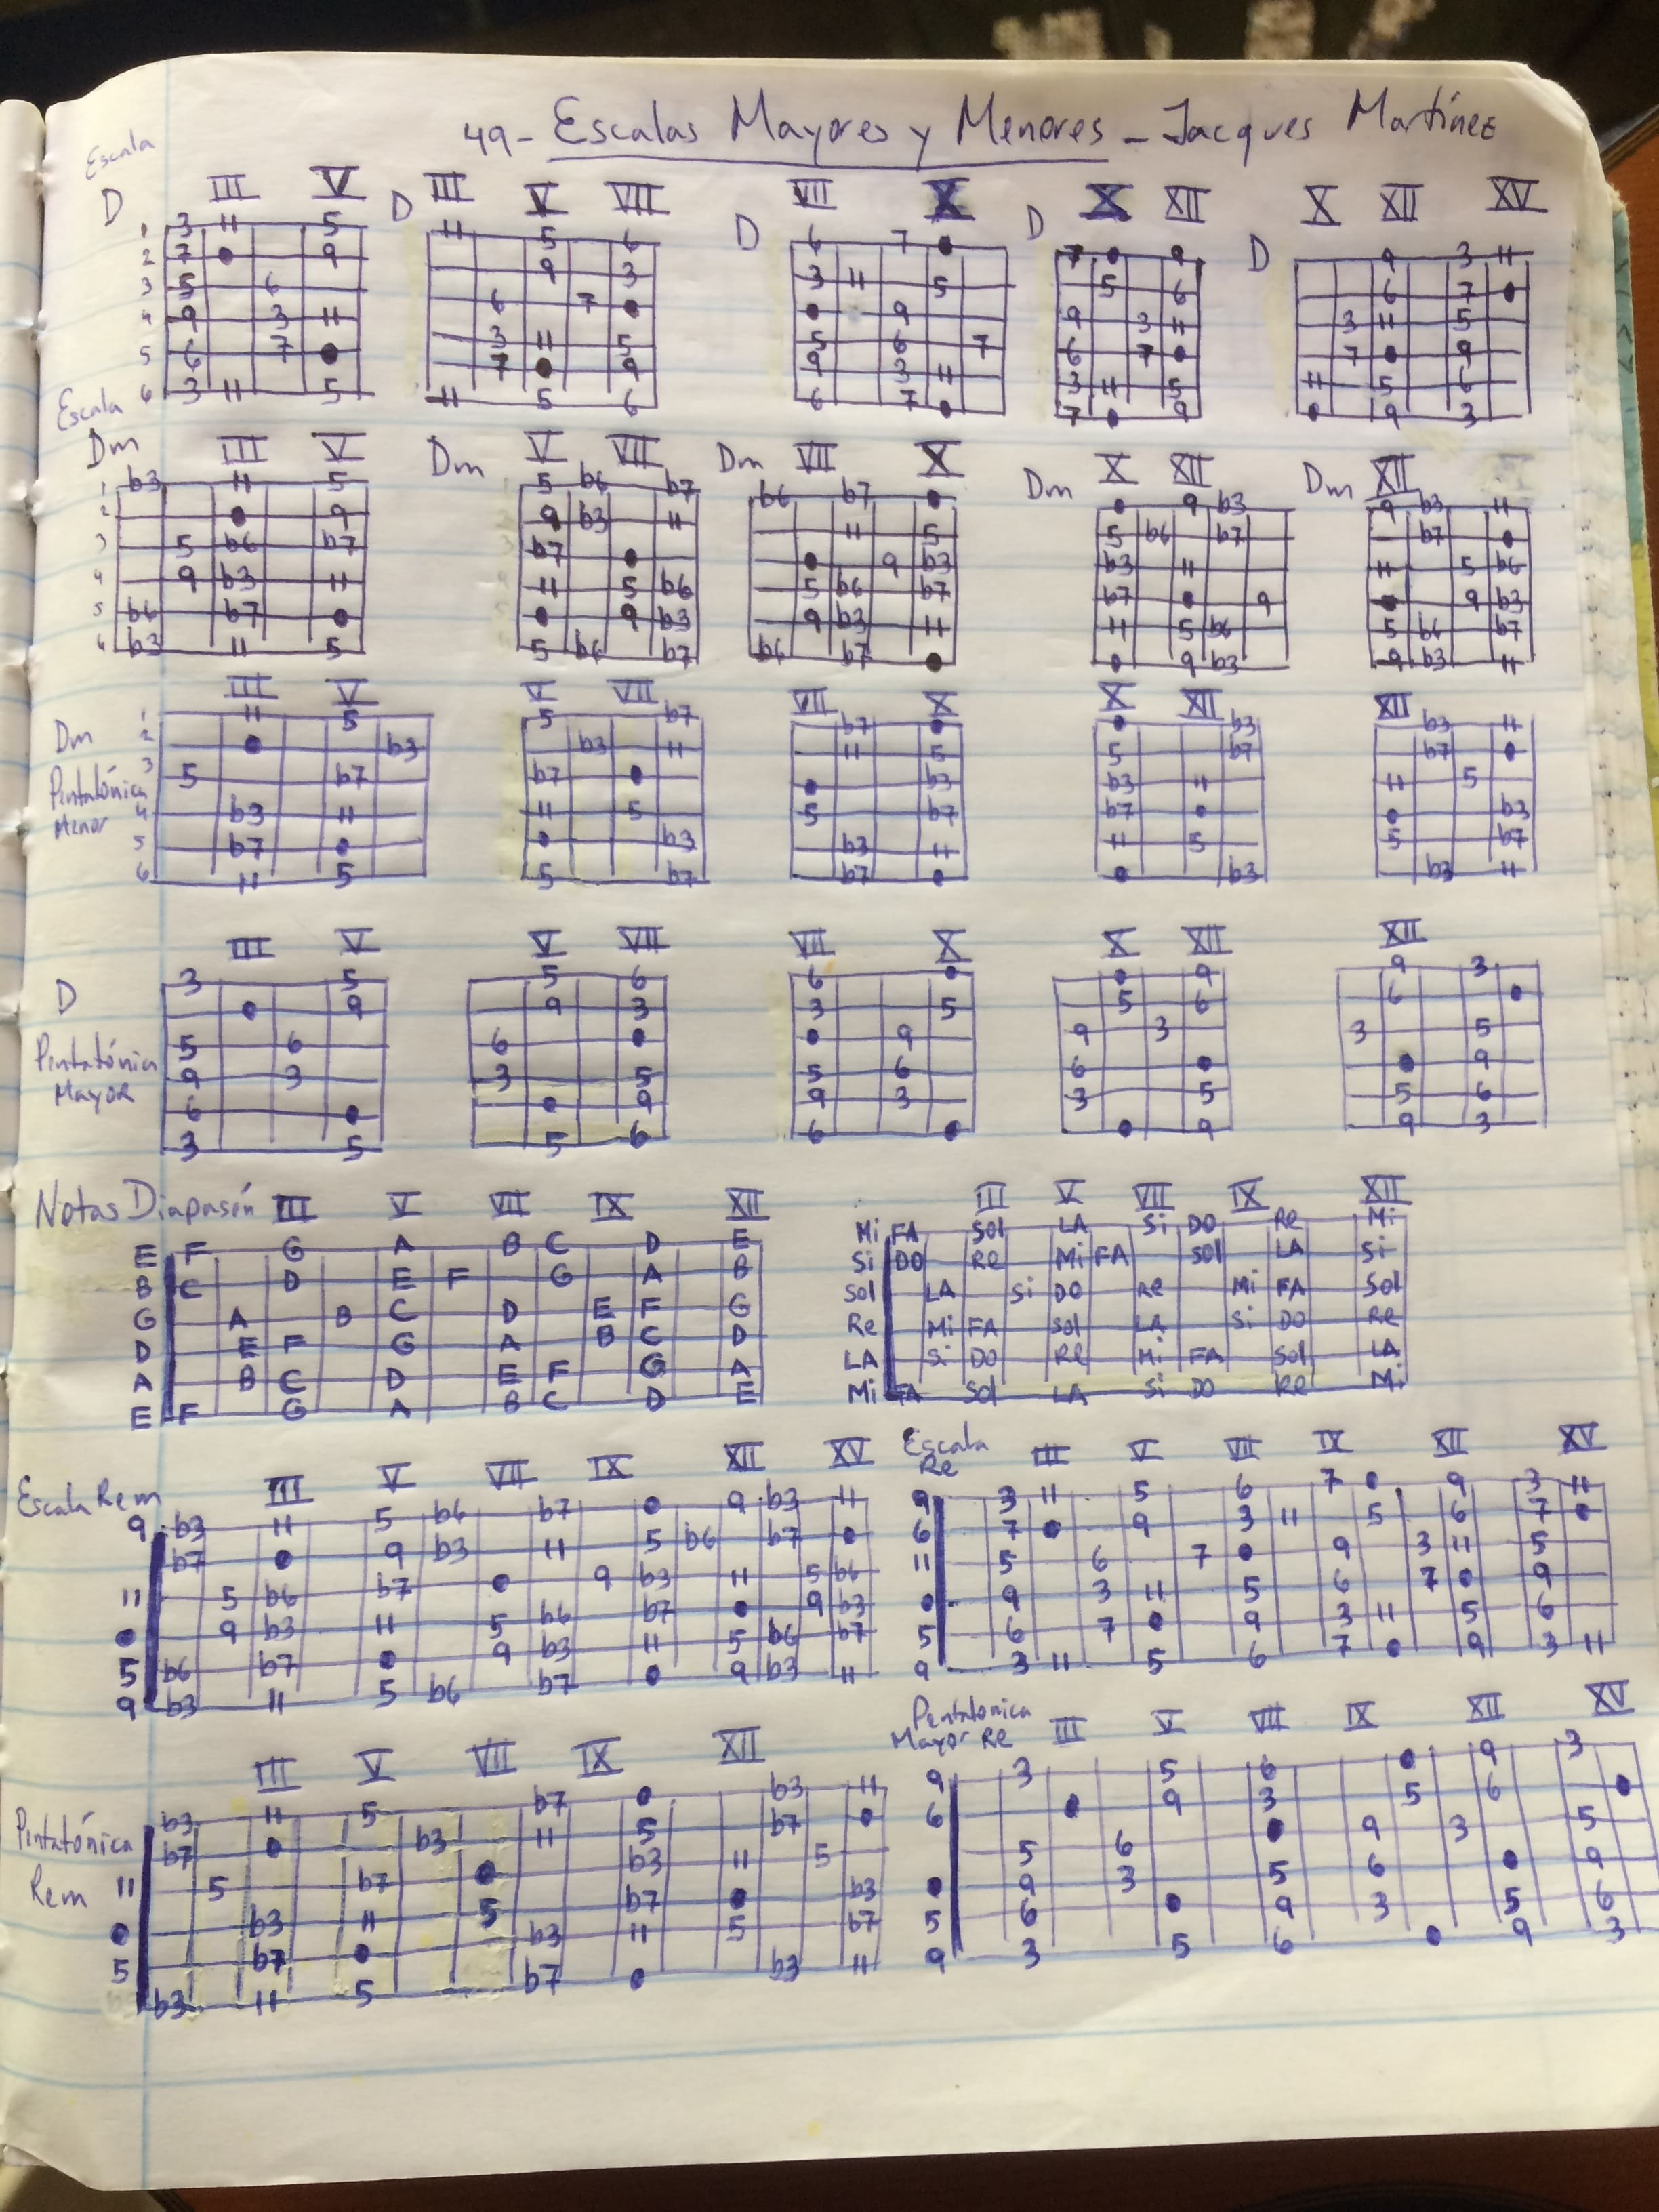 49- Escalas Mayores y Menores - Jacques Martínez
Escala
D III V D III V VII D VII X D X XII D X XII XV
1 3 11 5 11 5 6 6 7 ● 7 ● 9 9 3 11
2 7 ● 9 9 3 3 11 5 5 6 6 7 ●
3 5 6 6 7 ● ● 9 9 3 11 3 11 5
4 9 3 11 3 11 5 5 6 7 6 7 ● 7 ● 9
5 6 7 ● 7 ● 9 9 3 11 3 11 5 11 5 6
6 3 11 5 11 5 6 6 7 ● 7 ● 9 ● 9 3
Escala
Dm III V Dm V VII Dm VII X Dm X XII Dm XII
1 b3 11 5 5 b6 b7 b6 b7 ● ● 9 b3 9 b3 11
2 ● 9 9 b3 11 11 5 5 b6 b7 b7 ●
3 5 b6 b7 b7 ● ● 9 b3 b3 11 11 5 b6
4 9 b3 11 11 5 b6 5 b6 b7 b7 ● 9 ● 9 b3
5 b6 b7 ● ● 9 b3 9 b3 11 11 5 b6 5 b6 b7
4 b3 11 5 5 b6 b7 b6 b7 ● ● 9 b3 9 b3 11
III V V VII VII X X XII XII
Dm Pintatónica Menor
1 11 5 5 b7 b7 ● ● b3 b3 11
2 ● b3 b3 11 11 5 5 b7 b7 ●
3 5 b7 b7 ● ● b3 b3 11 11 5
4 b3 11 11 5 5 b7 b7 ● ● b3
5 b7 ● ● b3 b3 11 11 5 5 b7
6 11 5 5 b7 b7 ● ● b3 b3 11
III V V VII VII X X XII XII
D Pintatónica Mayor
3 5 5 6 6 ● ● 9 9 3
● 9 9 3 3 5 5 6 6 ●
5 6 6 ● ● 9 9 3 3 5
9 3 3 5 5 6 6 ● ● 9
6 ● ● 9 9 3 3 5 5 6
3 5 5 6 6 ● ● 9 9 3
Notas Diapasón III V VII IX XII
E F G A B C D E
B C D E F G A B
G A B C D E F G
D E F G A B C D
A B C D E F G A
E F G A B C D E
III V VII IX XII
Mi FA Sol LA Si DO Re Mi
Si DO Re Mi FA Sol LA Si
Sol LA Si DO Re Mi FA Sol
Re Mi FA Sol LA Si DO Re
LA Si DO Re Mi FA Sol LA
Mi FA Sol LA Si DO Re Mi
Escala Rem III V VII IX XII XV
9 b3 11 5 b6 b7 ● 9 b3 11
b7 ● 9 b3 11 5 b6 b7 ●
11 5 b6 b7 ● 9 b3 11 5 b6
● 9 b3 11 5 b6 b7 ● 9 b3
5 b6 b7 ● 9 b3 11 5 b6 b7
9 b3 11 5 b6 b7 ● 9 b3 11
Escala Re III V VII IX XII XV
9 3 11 5 6 7 ● 9 3 11
6 7 ● 9 3 11 5 6 7 ●
11 5 6 7 ● 9 3 11 5
● 9 3 11 5 6 7 ● 9
5 6 7 ● 9 3 11 5 6
9 3 11 5 6 7 ● 9 3 11
Pintatónica Rem
III V VII IX XII
b3 11 5 b7 ● b3 11
b7 ● b3 11 5 b7 ●
11 5 b7 ● b3 11 5
● b3 11 5 b7 ● b3
5 b7 ● b3 11 5 b7
b3 11 5 b7 ● b3 11
Pentatonica
Mayor Re III V VII IX XII XV
9 3 5 6 ● 9 3
6 ● 9 3 5 6 ●
5 6 ● 9 3 5
● 9 3 5 6 ● 9
5 6 ● 9 3 5 6
9 3 5 6 ● 9 3